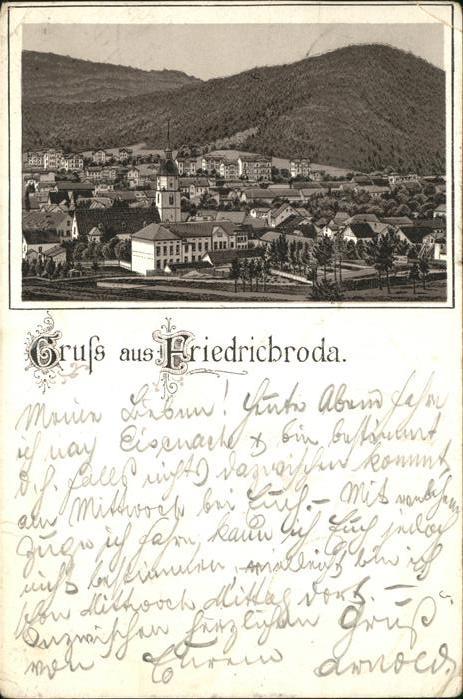 Gruß aus Friedrichroda.
Meine Lieben! Heute Abend fahre
ich nach Eisenach & bin bestimmt
d.h. falls nichts dazwischen kommt,
am Mittwoch bei Euch. – Mit welchem
Zuge ich fahre, kann ich Euch jedoch
nicht bestimmen, vielleicht bin ich
schon Mittwoch Mittag dort. –
Inzwischen herzlichen Gruß
von Eurem Arnold